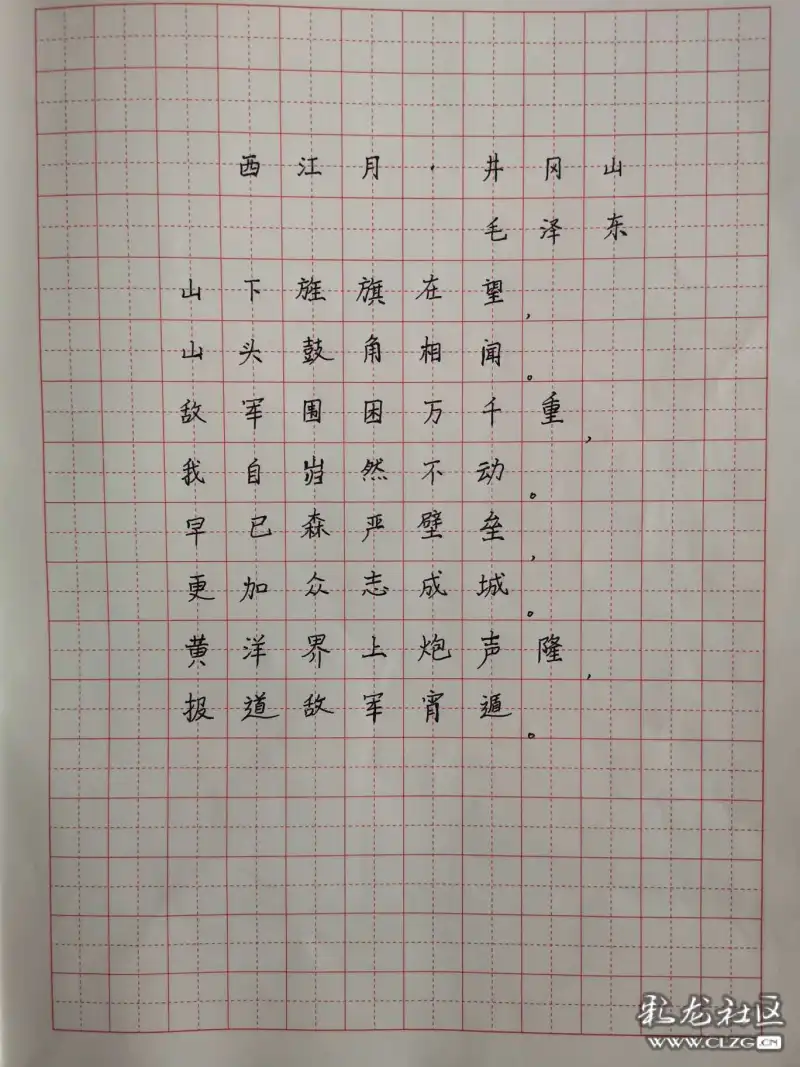 西江月·井冈山
毛泽东
山下旌旗在望，
山头鼓角相闻。
敌军围困万千重，
我自岿然不动。
早已森严壁垒，
更加众志成城。
黄洋界上炮声隆，
报道敌军宵遁。
彩龙社区
WWW.CLZG.CN